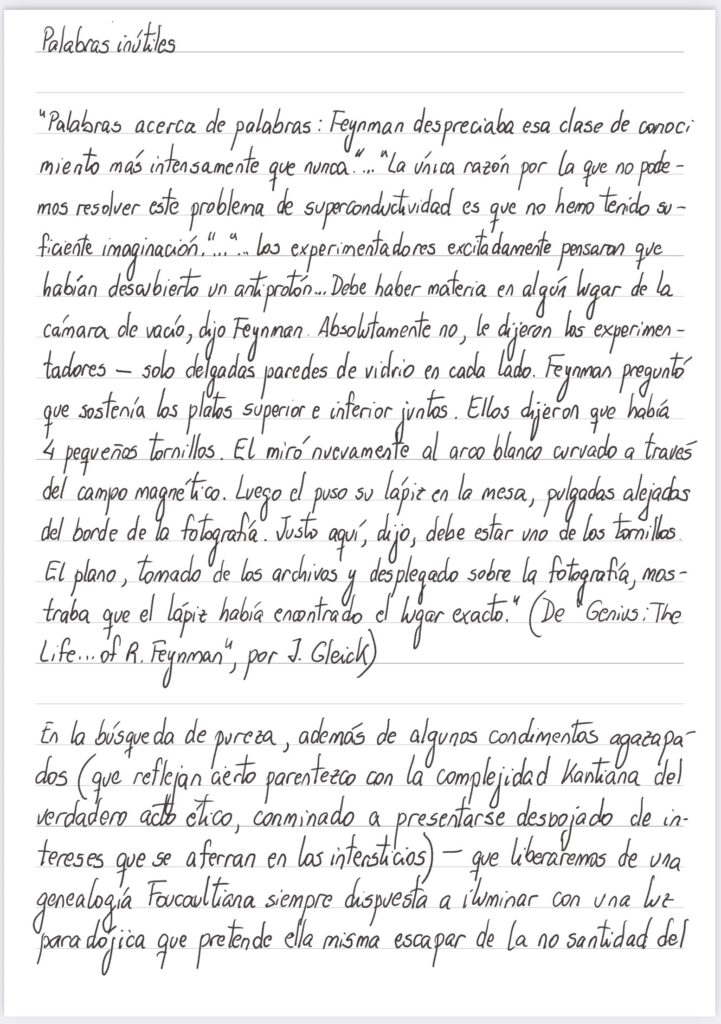 Palabras inútiles
"Palabras acerca de palabras: Feynman despreciaba esa clase de conoci
miento más intensamente que nunca."..."La única razón por la que no pode-
mos resolver este problema de superconductividad es que no hemo tenido su-
ficiente imaginación."..."... los experimentadores excitadamente pensaron que
habían descubierto un antiprotón... Debe haber materia en algún lugar de la
cámara de vacío, dijo Feynman. Absolutamente no, le dijeron los experimen-
tadores — solo delgadas paredes de vidrio en cada lado. Feynman preguntó
que sostenía los platos superior e inferior juntos. Ellos dijeron que había
4 pequeños tornillos. El miró nuevamente al arco blanco curvado a través
del campo magnético. Luego el puso su lápiz en la mesa, pulgadas alejadas
del borde de la fotografía. Justo aquí, dijo, debe estar uno de los tornillos.
El plano, tomado de los archivos y desplegado sobre la fotografía, mos-
traba que el lápiz había encontrado el lugar exacto." (De "Genius: The
Life... of R. Feynman", por J. Gleick)
En la búsqueda de pureza, además de algunos condimentos agazapa-
dos (que reflejan cierto parentezco con la complejidad Kantiana del
verdadero acto ético, conminado a presentarse despojado de in-
tereses que se aferran en los intersticios) — que liberaremos de una
genealogía Foucaultiana siempre dispuesta a iluminar con una luz
paradójica que pretende ella misma escapar de la no santidad del